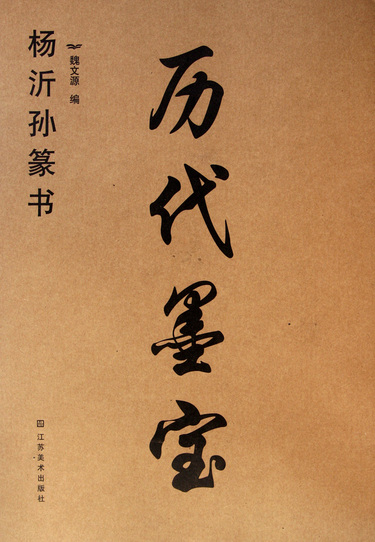 历代墨宝
杨沂孙篆书
魏文源 编
江苏美术出版社